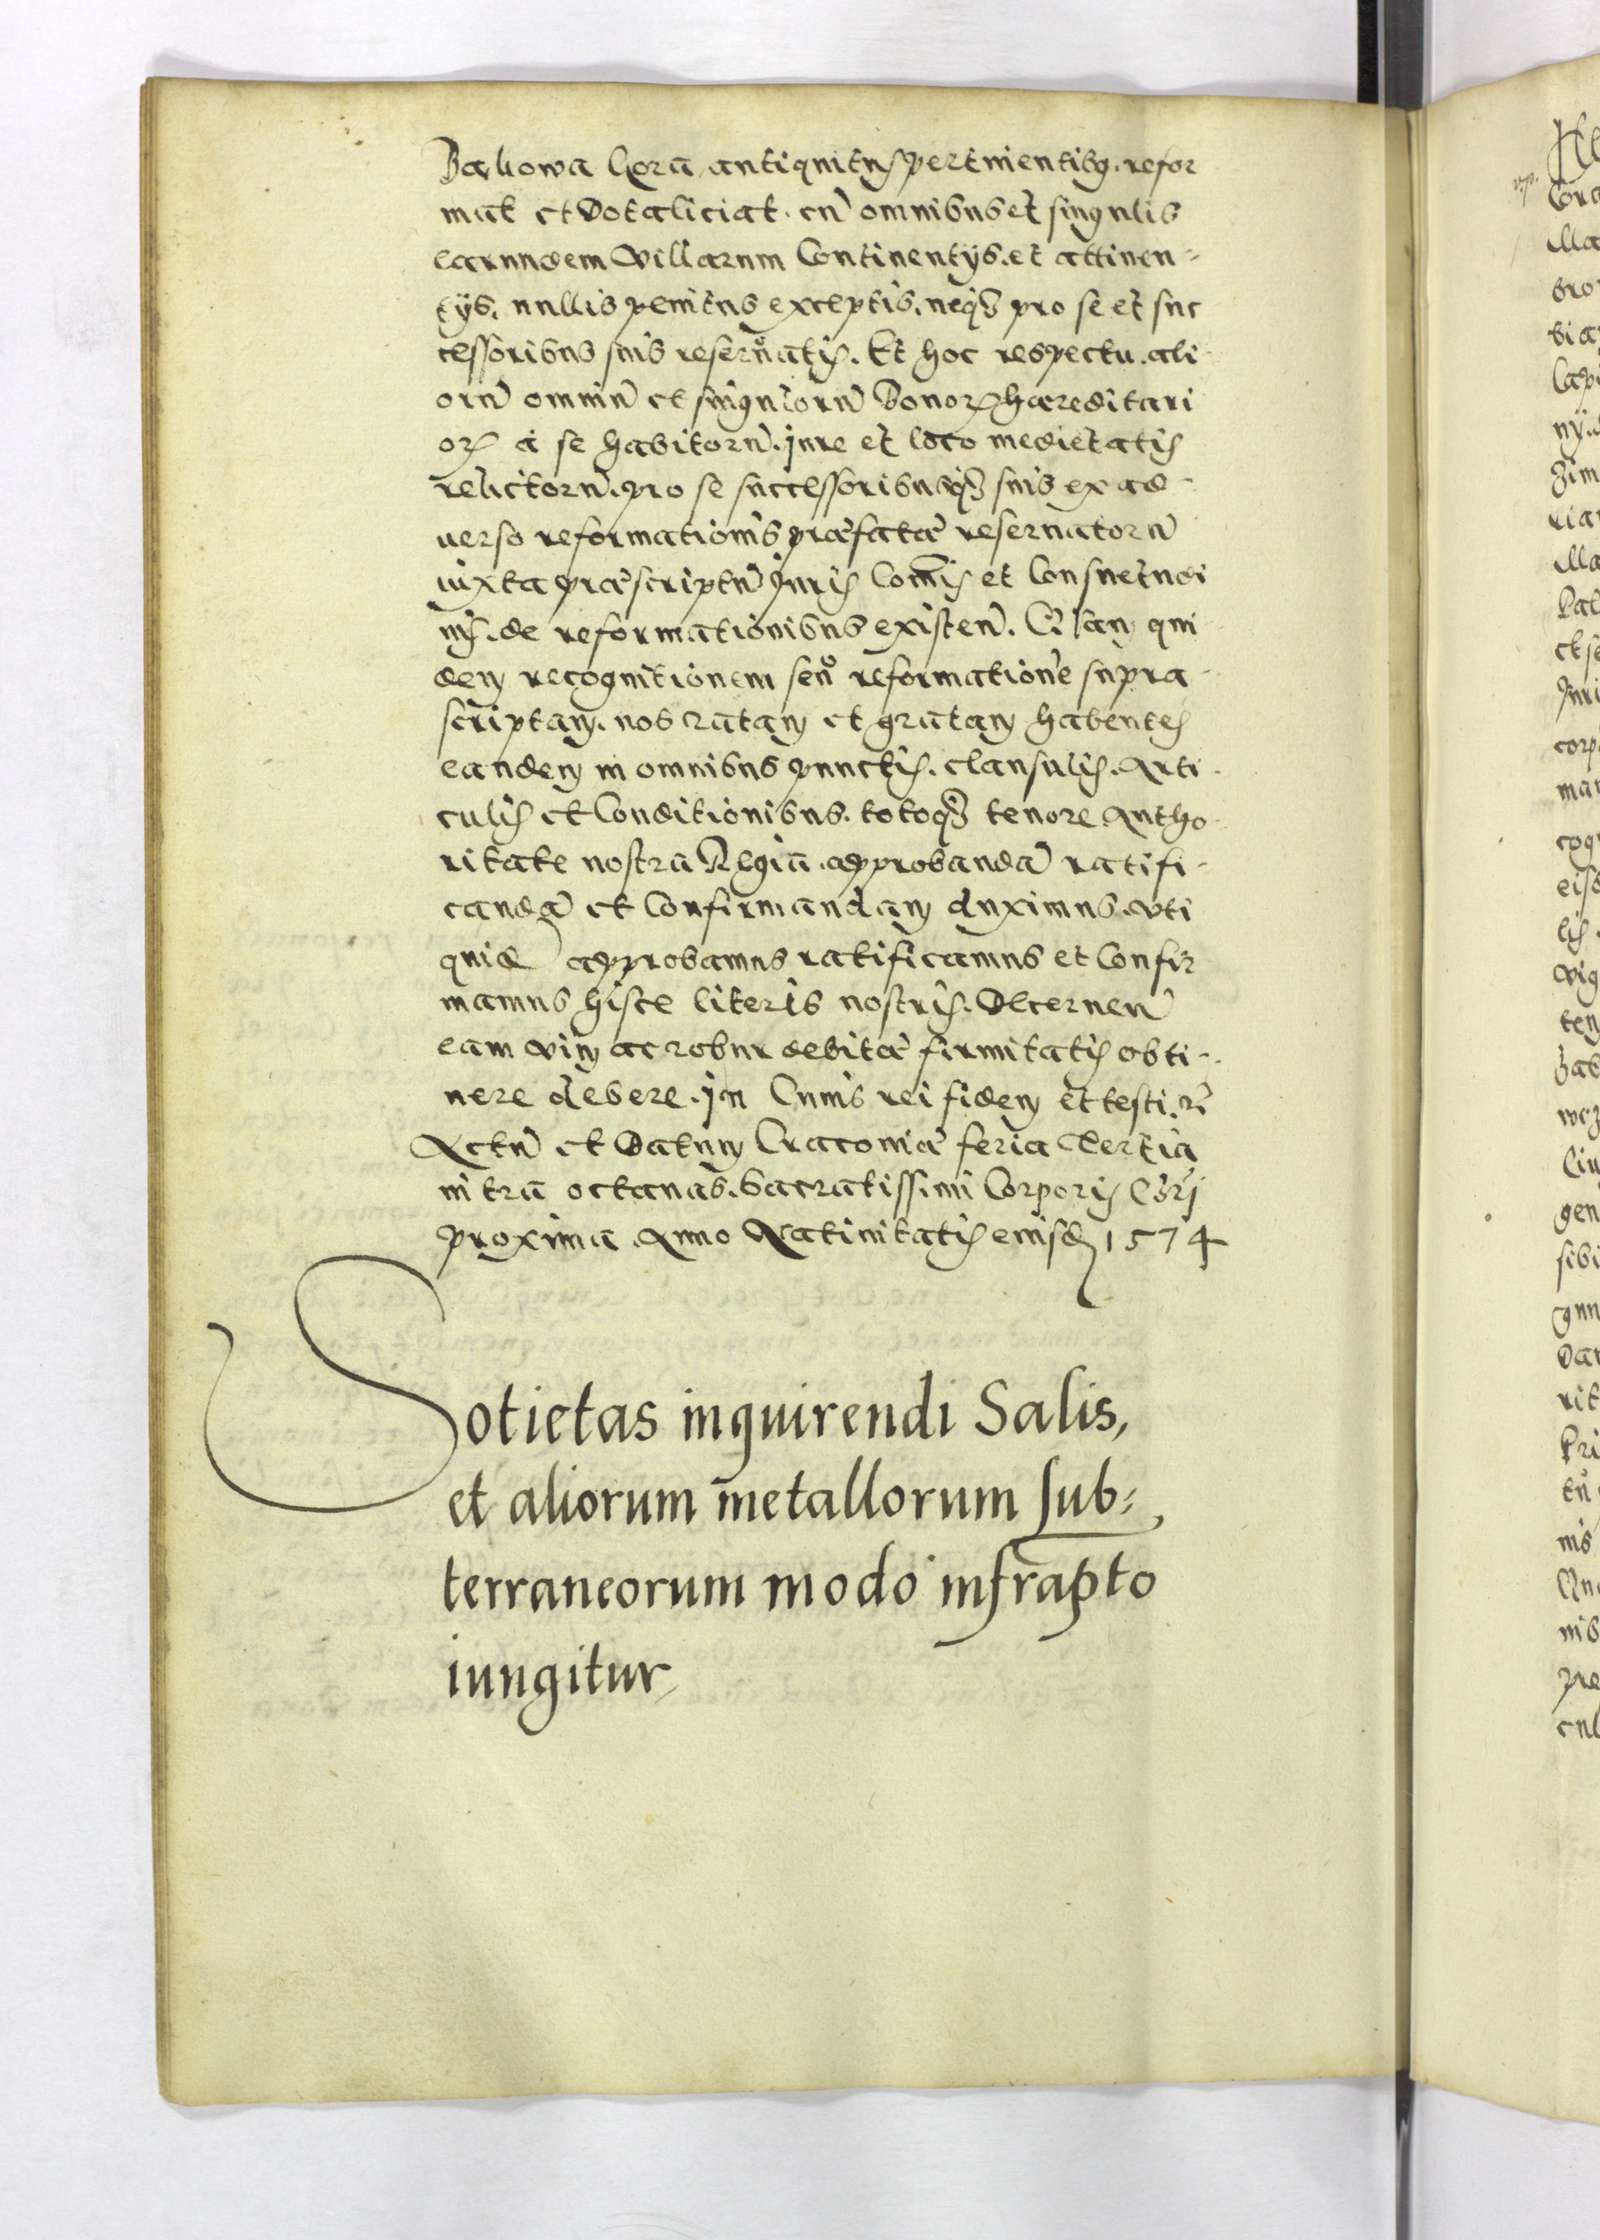 Babowa Gora, antiquitus pertinentibq. refor
mat et Dotaliciat. cū omnibus et singulis
earundem Villarum Continentijs. et attinen-
tijs. nullis penitus exceptis. neqȝ pro se et suc
cessoribus suis reseruatis. Et hoc respectu. ali
orū omniū et singulorū Bonorꝝ hæreditari
orꝝ à se habitorū. jure et loco medietatis
relictorū. pro se successoribusqȝ suis ex ad
uerso reformationis præfatæ reseruatorū
iuxta præscriptū Juris Comīs et Consuetudi
nis. de reformationibus existen̄. Qsam qui
dem recognitionem seu reformationē supra
scriptam. nos ratam et gratam habentes
eandem in omnibus punctis. clausulis. Arti
culis et Conditionibus. totoqȝ tenore Autho
ritate nostra Regia. approbandā ratifi
candā et Confirmandam duximus. vti
quid approbamus ratificamus et Confir
mamus hisce literis nostris. Decernen̄
eam vim ac robur debitæ firmitatis obti-
nere debere. jn Cuius rei fidem et testi. m̄
Actū et Datum Cracouiæ feria tertia
intra octauas. Sacratissimi Corporis Chrī
proxima. Anno Natiuitatis eiusd 1574
Sotietas inquirendi Salis,
et aliorum metallorum sub=
terraneorum modo infrapto
iungitur